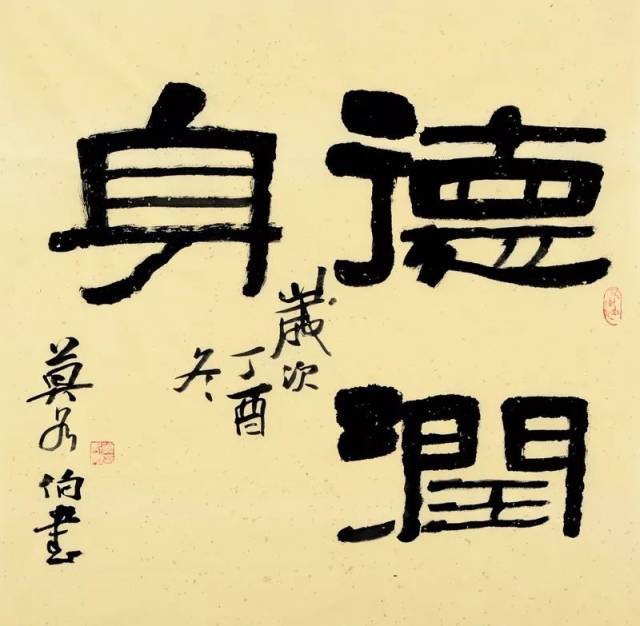 德潤
身
歲次
丁酉
冬
莫各伯書